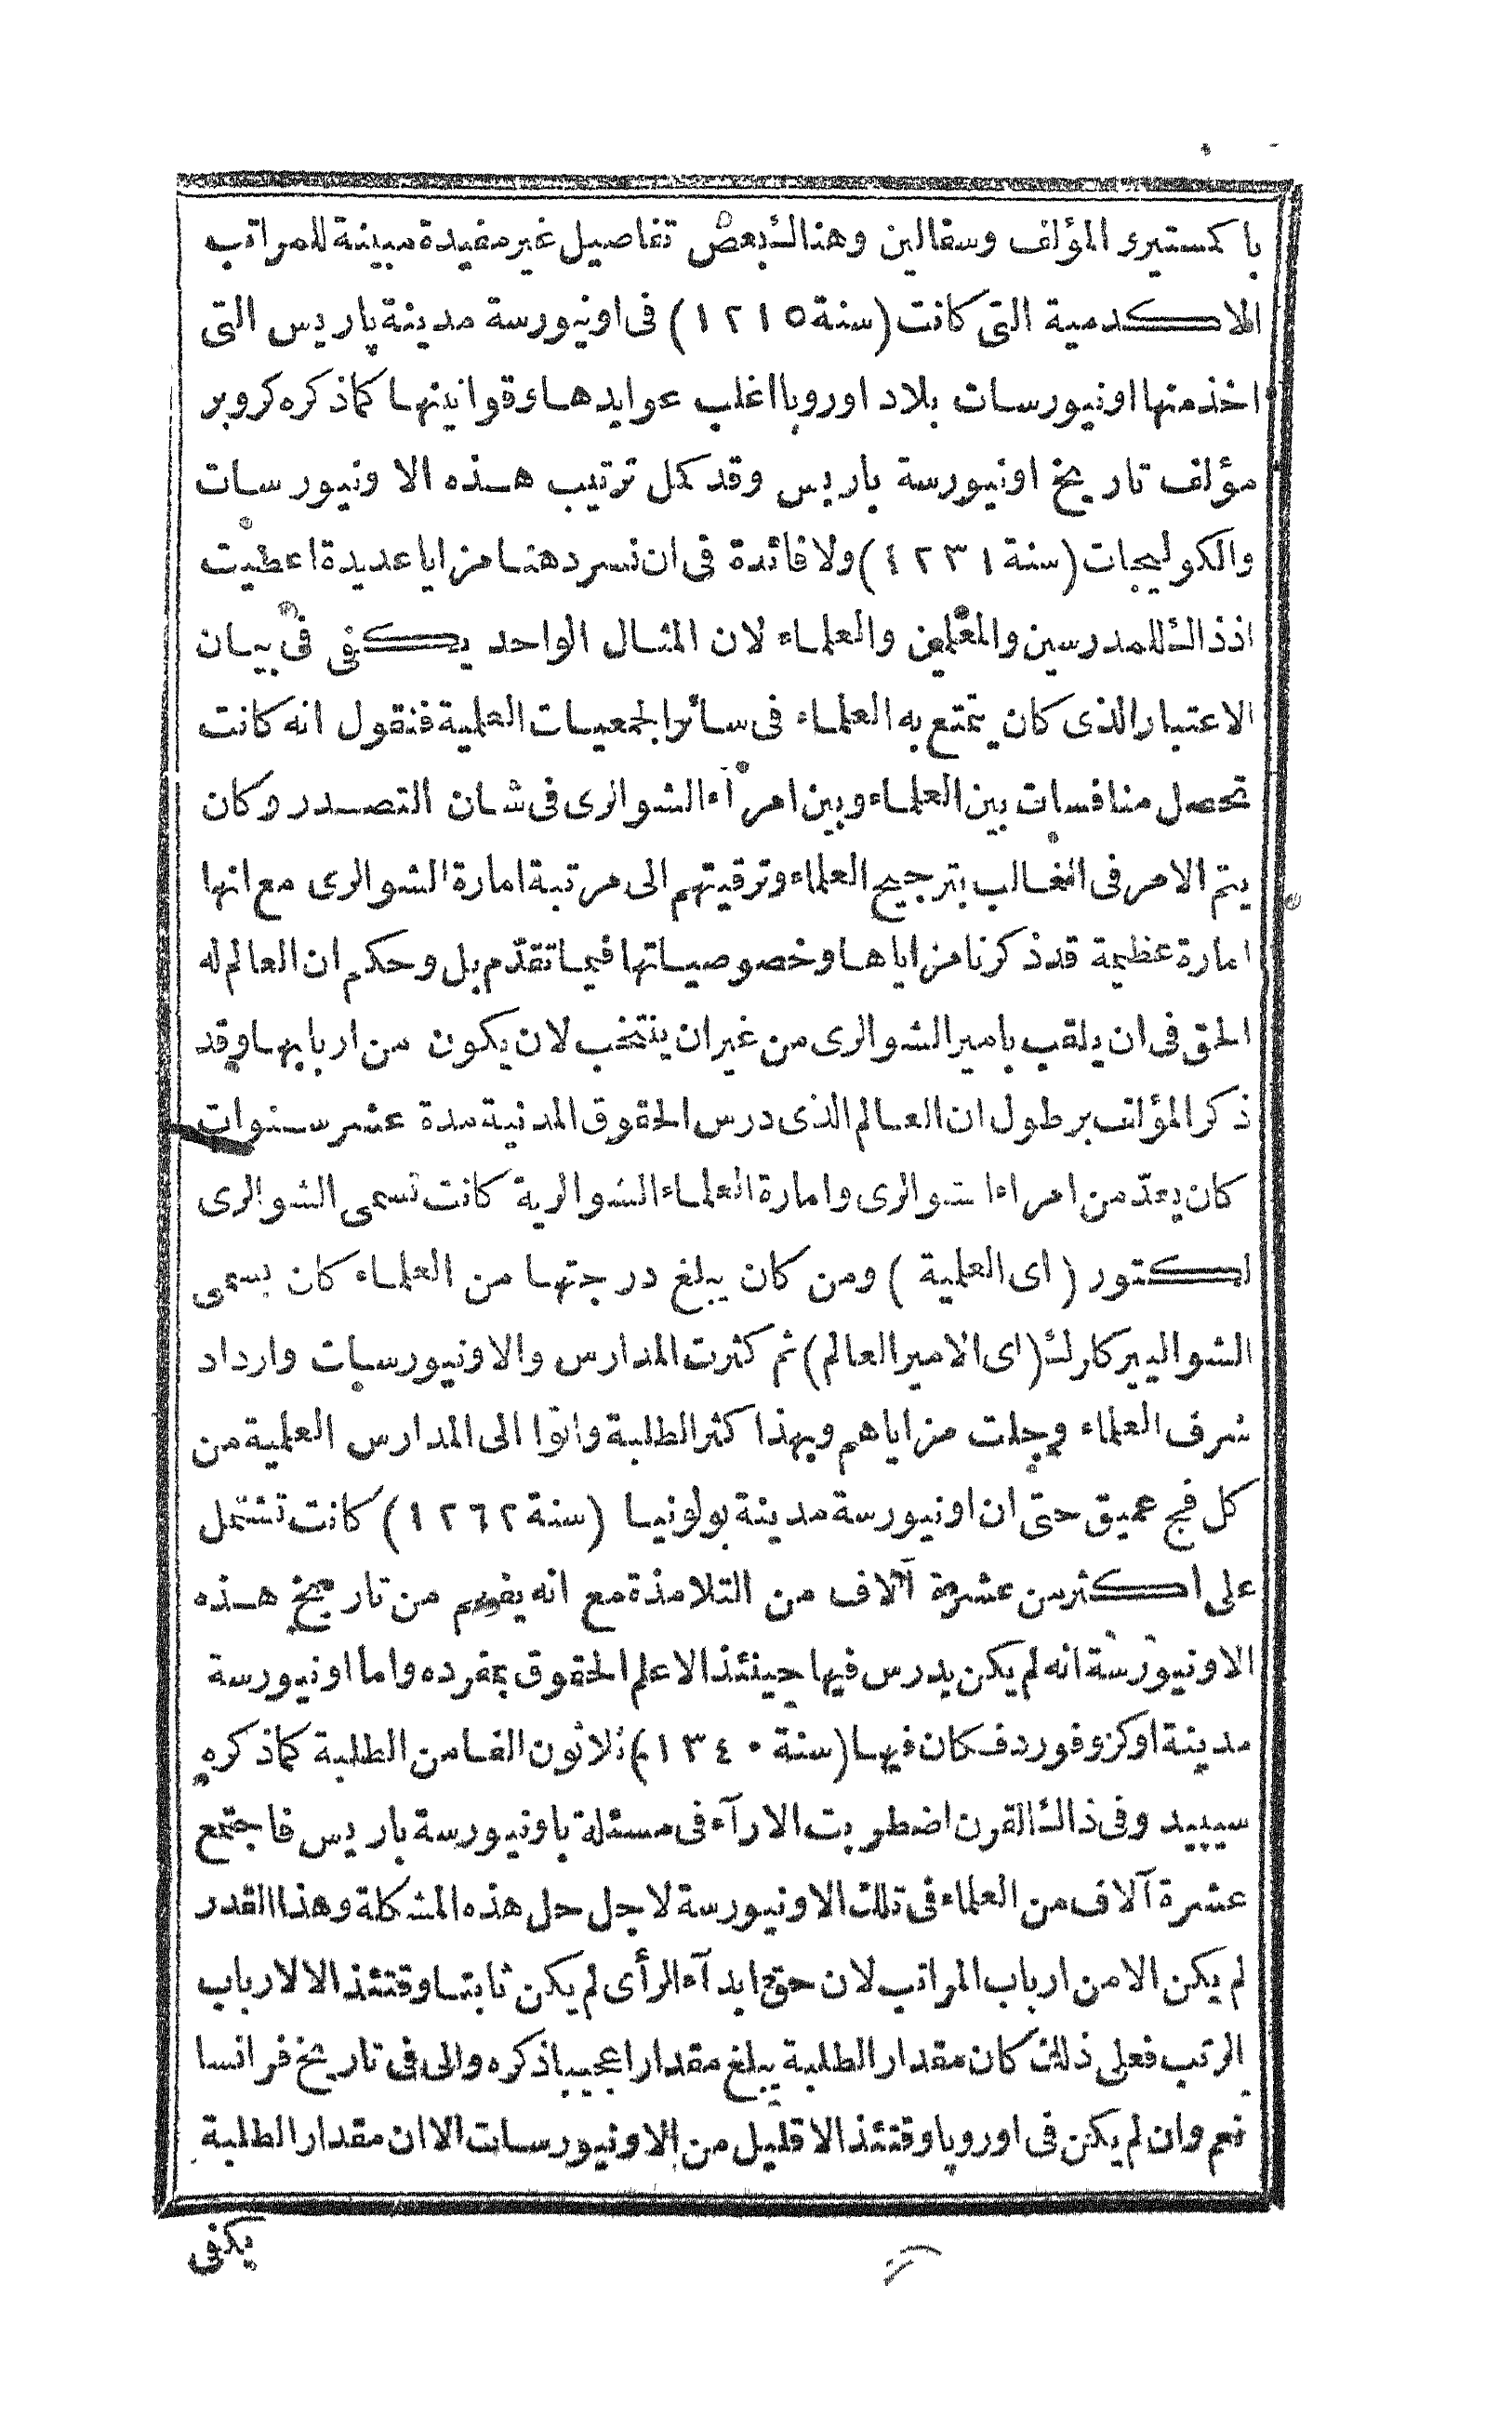 با كستيرى المؤلف وسقالين وهنالك بعض تفاصيل غير مفيدة مبينة للمراتب
الاكدمية التى كانت (سنة ١٢١٥) فى اونيورسة مدينة پاريس التى
اخذ منها اونيورسات بلاد اوروپا اغلب عوايدها وقوانينها كما ذكره كروبر
مؤلف تاريخ اونيورسة پاريس وقد كمل ترتيب هذه الاونيورسات
والكوليجات (سنة ١٢٣١) ولا فائدة فى ان نسرد هنا مزايا عديدة اعطيت
اذ ذالك للمدرسين والمعلمين والعلماء لان المثال الواحد يكفى فى بيان
الاعتبار الذى كان يتمتع به العلماء فى سائر الجمعيات العلمية فنقول انه كانت
تحصل منافسات بين العلماء وبين امرآء الشوالرى فى شان التصدر وكان
يتم الامر فى الغالب بترجيح العلماء وترقيتهم الى مرتبة امارة الشوالرى مع انها
امارة عظيمة قد ذكرنا مزاياها وخصوصياتها فيما تقدّم بل وحكم ان العالم له
الحق فى ان يلقب بامير الشوالرى من غير ان ينتخب لان يكون من اربابها وقد
ذكر المؤلف برطول ان العالم الذى درس الحقوق المدنية مدة عشر سنوات
كان يعدّ من امراء الشوالرى وامارة العلماء الشوالرية كانت تسمى الشوالرى
لكتور (اى العلمية) ومن كان يبلغ درجتها من العلماء كان يسمى
الشوالييركارلك (اى الامير العالم) ثم كثرت المدارس والاونيورسات وازداد
شرف العلماء وجلت مزاياهم وبهذا كثر الطلبة واتوا الى المدارس العلمية من
كل فج عميق حتى ان اونيورسة مدينة بولونيا (سنة ١٢٦٢) كانت تشتمل
على اكثر من عشرة آلاف من التلامذة مع انه يفهم من تاريخ هذه
الاونيورسة انه لم يكن يدرس فيها حينئذ الا علم الحقوق بمفرده واما اونيورسة
مدينة اوكزوفورد فكان فيها (سنة ١٣٤٠) ثلاثون الفا من الطلبة كما ذكره
سيپيد وفى ذالك القرن اضطربت الارآء فى مسئلة باونيورسة پاريس فاجتمع
عشرة آلاف من العلماء فى تلك الاونيورسة لاجل حل هذه المشكلة وهذا القدر
لم يكن الا من ارباب المراتب لان حق ابدآء الرأى لم يكن ثابتا وقتئذ الا لارباب
الرتب فعلى ذلك كان مقدار الطلبة يبلغ مقدارا عجيبا ذكره والى فى تاريخ فرانسا
نعم وان لم يكن فى اوروپا وقتئذ الا قليل من الاونيورسات الا ان مقدار الطلبة
يكفى